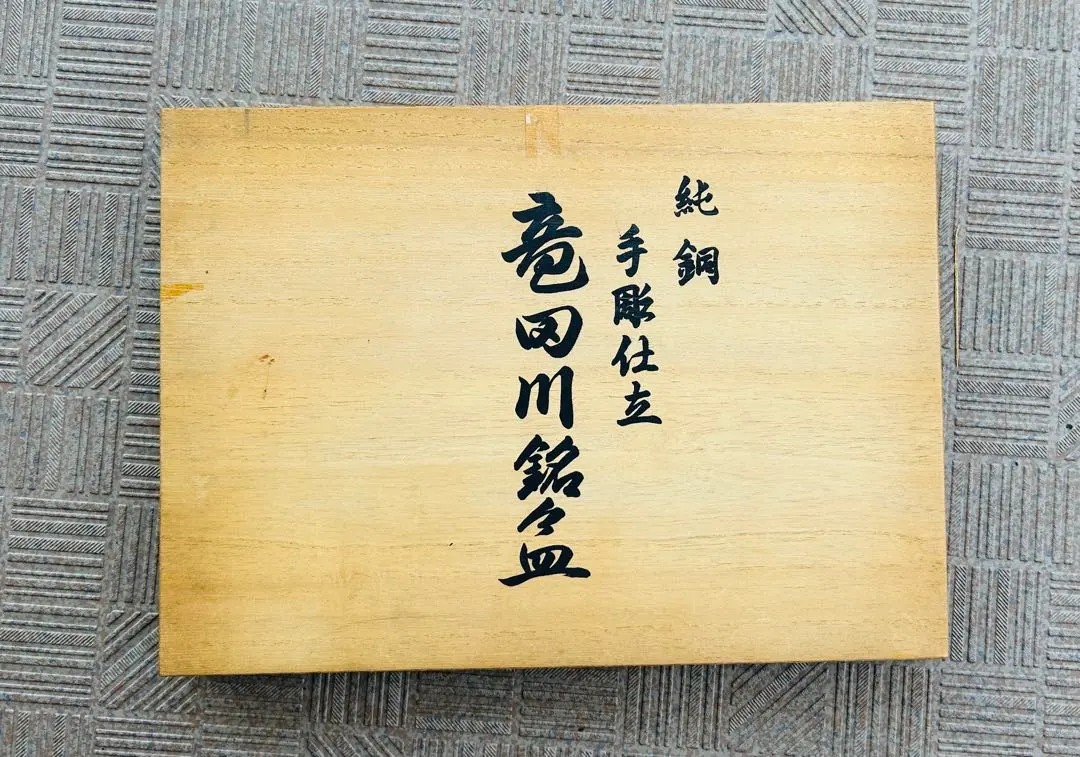 純銅
手彫仕立
竜田川銘々皿